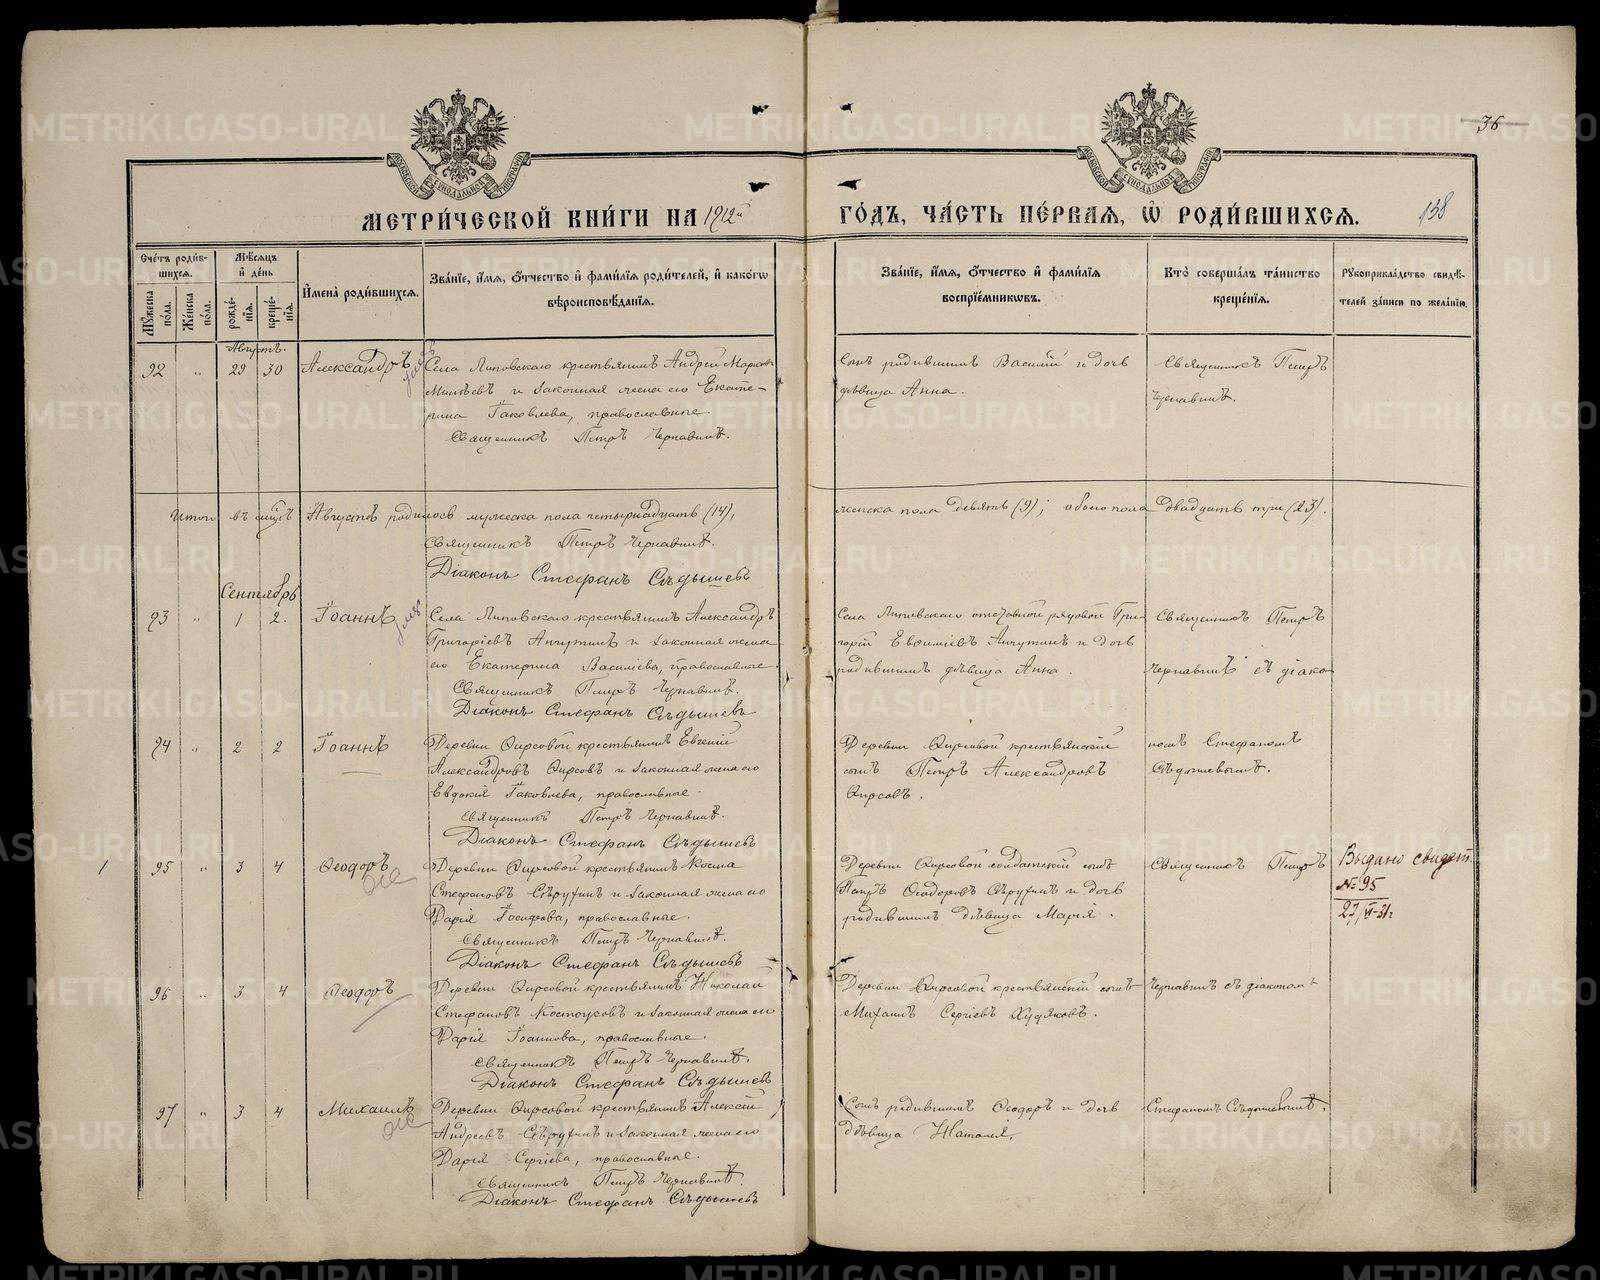 36
МЕТРИ́ЧЕСКОЙ КНИ́ГИ НА 1912й ГО́ДЪ, ЧА́СТЬ ПЕ́РВАѦ, Ѡ҆ РОДИ́ВШИХСѦ.
138
Сче́тъ роди́в-
шихсѧ.
Мѣ́сѧцъ
и҆ де́нь
И҆мена̀ роди́вшихсѧ.
Зва́нїе, и҆́мѧ, ѻ҆́тчество и҆ фамѝлїѧ роди́телей, и҆ како́гѡ
вѣроисповѣ́данїѧ.
Зва́нїе, и҆́мѧ, ѻ҆́тчество и҆ фамѝлїѧ
воспрїе́мникѡвъ.
Кто̀ соверша́лъ та́инство
креще́нїѧ.
Рꙋкоприкла́дство свидѣ́-
телей за́писи по жела́нїю.
Мꙋ́жеска
по́ла.
Же́нска
по́ла.
рожде́-
нїѧ.
креще́-
нїѧ.
Августъ.
92 " 29 30 Александръ
Села Липовскаго крестьянинъ Андрей Марковъ
и законная жена его Екате-
рина Іаковлева, православные.
Священникъ Петръ Чернавинъ.
Сынъ родившаго Василій и дочь
дѣвица Анна.
Священникъ Петръ
Чернавинъ.
Итого въ мцѣ Августѣ родилось мужеска пола четырнадцать (14), женска пола девять (9); обоего пола двадцать три (23).
Священникъ Петръ Чернавинъ.
Діаконъ Стефанъ Сѣдышевъ
Сентябрь
93 " 1 2. Іоаннъ
Села Липовскаго крестьянинъ Александръ
Григоріевъ Анчутинъ и законная жена
его Екатерина Василіева, православные.
Священникъ Петръ Чернавинъ.
Діаконъ Стефанъ Сѣдышевъ
Села Липовскаго отставной рядовой Гри-
горій Евѳиміевъ Анчутинъ и дочь
дѣвица Анна.
Священникъ Петръ
Чернавинъ съ діако-
94 " 2 2 Іоаннъ
Деревни Ѳирсовой крестьянинъ Евгеній
Александровъ Ѳирсовъ и законная жена его
Евдокія Іаковлева, православные.
Священникъ Петръ Чернавинъ.
Діаконъ Стефанъ Сѣдышевъ
Деревни Ѳирсовой крестьянскій
сынъ Петръ Александровъ
Ѳирсовъ.
номъ Стефаномъ
Сѣдышевымъ.
1 95 " 3 4 Ѳеодоръ
Деревни Ѳирсовой крестьянинъ Косма
Стефановъ и законная жена его
Дарія Іосифова, православные.
Священникъ Петръ Чернавинъ.
Діаконъ Стефанъ Сѣдышевъ
Деревни Ѳирсовой солдатскій сынъ
Петръ Ѳеодоровъ и дочь
дѣвица Марія.
Священникъ Петръ
Выдано свидет.
№ 95
27/VI-21г
96 " 3 4 Ѳеодоръ
Деревни Ѳирсовой крестьянинъ Николай
Стефановъ Костоусовъ и законная жена его
Дарія Іоаннова, православные.
Священникъ Петръ Чернавинъ.
Діаконъ Стефанъ Сѣдышевъ
Деревни Ѳирсовой крестьянскій сынъ
Михаилъ Сергіевъ Худяковъ.
Чернавинъ съ діакономъ
97 " 3 4 Михаилъ
Деревни Ѳирсовой крестьянинъ Алексій
Андреевъ и законная жена его
Дарія Сергіева, православные.
Священникъ Петръ Чернавинъ.
Діаконъ Стефанъ Сѣдышевъ
Сынъ Ѳеодоръ и дочь
дѣвица Наталія.
Стефаномъ Сѣдышевымъ.